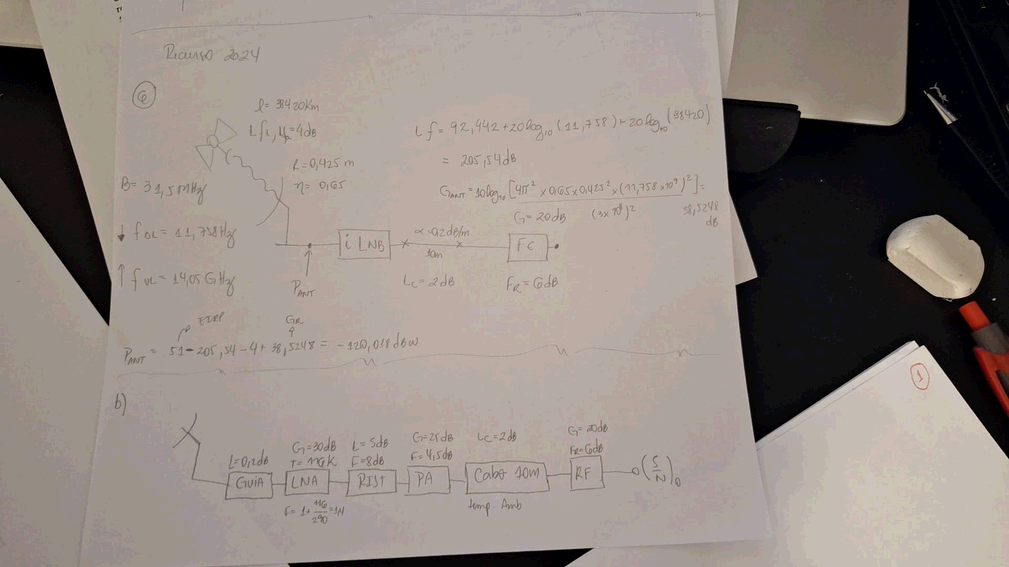 Recurso 2024
6
l = 38420Km
L fl, = 4dB
Lf = 92,442 + 20log10 (11,758) + 20log10 (38420)
= 205,54 dB
R = 0,425 m
η = 0,65
B = 31,5 MHz
GANT = 10log10 [4π² × 0,65 × 0,425² × (11,758 × 10⁹)²] =
(3×10⁸)²
38,5248 dB
G = 20dB
α = 0,2 dB/m
↓ fDL = 11,758Hz
i LNB
10m
FC
↑ fUL = 14,05 GHz
PANT
LC = 2dB
FR = 6dB
EIRP
GR
PANT = 51 - 205,54 - 4 + 38,5248 = -120,018 dBW
b)
L = 0,2dB
G = 30dB
T = 116K
L = 5dB
F = 8dB
G = 25dB
F = 4,5dB
LC = 2dB
G = 20dB
FR = 6dB
GUIA
LNA
PA
Cabo 10m
RF
(S/N)o
F = 1 + 116/290 = 1,4
temp Amb
1